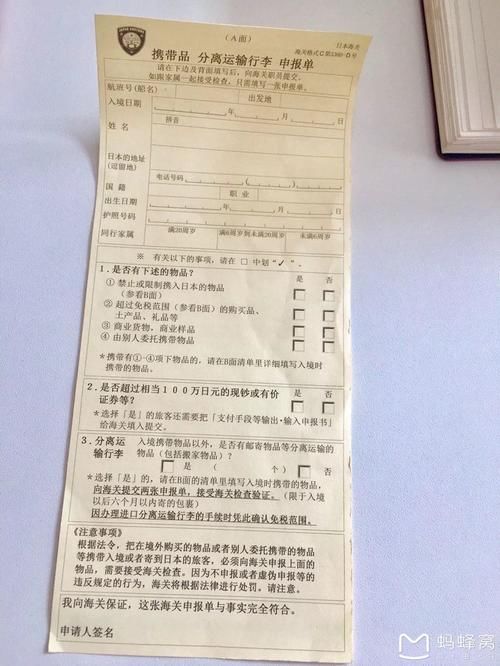 (A面)
日本海关
海关格式C第5360-D号
携带品 分离运输行李 申报单
请在下边及背面填写后，向海关职员提交。
如跟家属一起接受检查，只需填写一张申报单。
航班号(船名) 出发地
入境日期 年 月 日
姓名 拼音
日本的地址
(逗留地)
电话号码
国籍 职业
出生日期 年 月 日
护照号码
同行家属 满20周岁 满6周岁到未满20周岁 未满6周岁
※ 有关以下的事项，请在 □ 中划"✓"。
1.是否有下述的物品？ 是 否
① 禁止或限制携入日本的物品
(参看B面)
② 超过免税范围(参看B面)的购买品、
土产品、礼品等
③ 商业货物，商业样品
④ 由别人委托携带物品
*携带有①-④项下物品的，请在B面清单里详细填写入境时
携带的物品。
2.是否超过相当100万日元的现钞或有价
证券等？ 是 否
*选择「是」的旅客还需要把「支付手段等输出·输入申报书」
给海关填入提交。
3.分离运 入境携带物品以外，是否有邮寄物品等分离运输的
输行李 物品(包括搬家物品)？
是 ( 个) 否
*选择「是」的，请在B面的清单里填写入境时携带的物品，
向海关提交两张申报单，接受海关检查验证。(限于入境
以后六个月以内寄的包裹)
因办理进口分离运输行李的手续时凭此确认免税范围。
《注意事项》
根据法令，把在境外购买的物品或者别人委托携带的物品
等携带入境或者寄到日本的旅客，必须向海关申报上面的
物品，需要接受海关检查。因为不申报或者虚伪申报等的
违反规定的行为，海关将根据法律进行处罚。请注意。
我向海关保证，这张海关申报单与事实完全符合。
申请人签名
蚂蜂窝